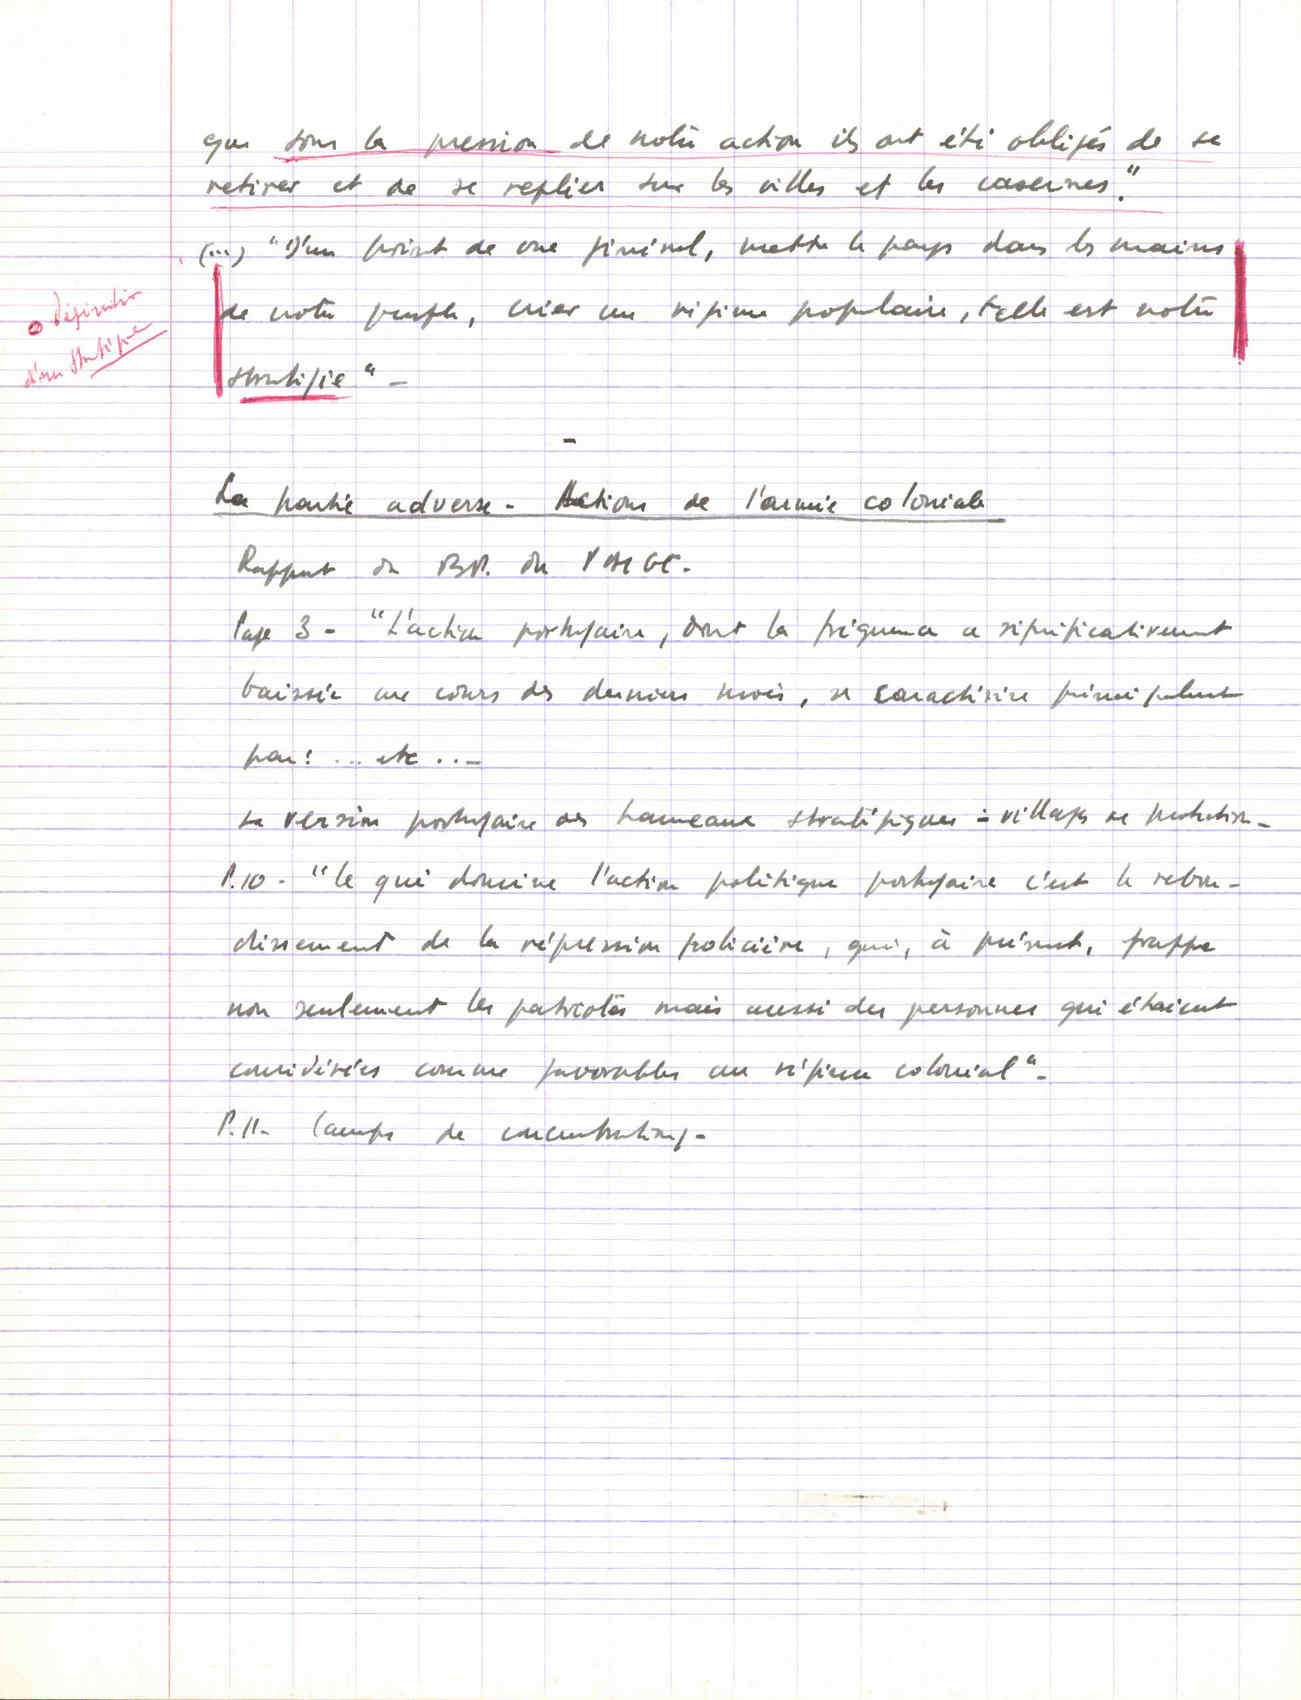 que sous la pression de notre action ils ont été obligés de se
retirer et de se replier sur les villes et les casernes."
(...) "D'un point de vue général, mettre le pays dans les mains
de notre peuple, créer un régime populaire, telle est notre
stratégie" -
• Définition
d'une stratégie
-
La partie adverse - Actions de l'armée coloniale
Rapport du BP. du PAIGC.
Page 3 - "L'action portugaise, dont la fréquence a significativement
baissée au cours des derniers mois, se caractérise principalement
par : ... etc ...
La version portugaise des hameaux stratégiques = villages de protection -
P.10 - "Ce qui domine l'action politique portugaise c'est le rebon-
dissement de la répression policière, qui, à présent, frappe
non seulement les patriotes mais aussi des personnes qui étaient
considérées comme favorables au régime colonial" -
P.11 - Camps de concentration -